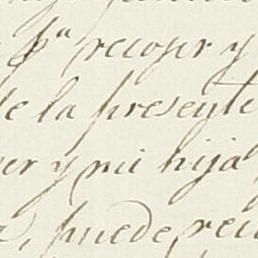 pª recoger y
de la presente
er y mi hija
puede, rec